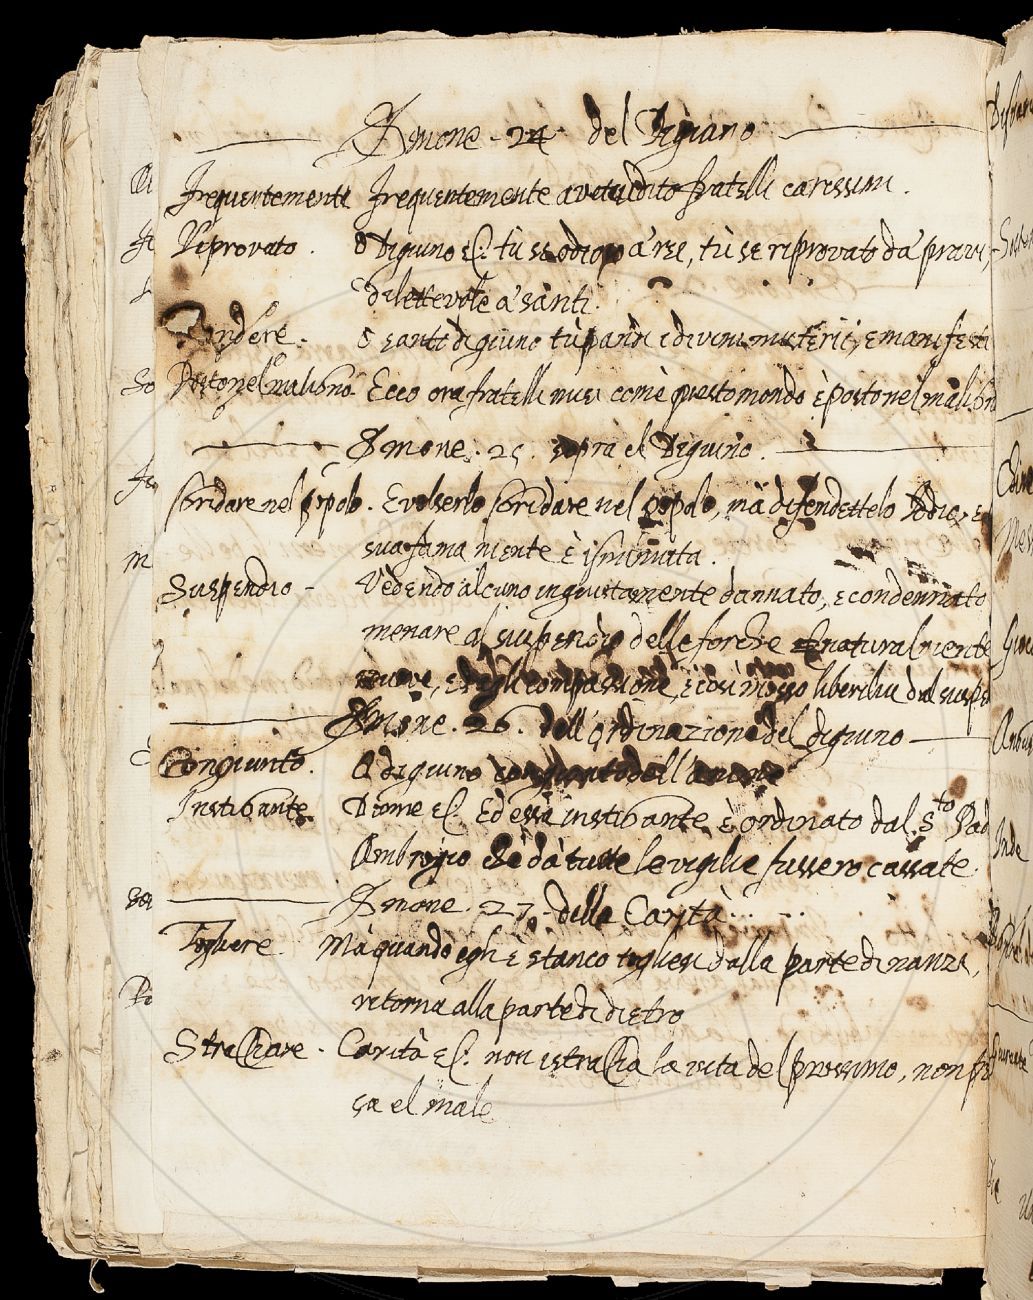 Sermone. 24 del Digiuno
Frequentemente Frequentemente avete udito fratelli carissimi.
Reprovato. O digiuno &c. tù se odioso a' rei, tù se riprovato da' pravi,
dilettevole a' santi.
Pandere. O santo digiuno tù pandi i divini misterii, e manifesti
Posto nel maligno. Ecco ora fratelli miei come questo mondo è posto nel maligno
Sermone. 25. sopra el Digiuno.
Sgridare nel popolo. E volserlo sgridare nel popolo, mà difendettelo Iddio, e
sua fama niente è isminuita.
Suspendio - Vedendo alcuno ingiustamente dannato, e condennato
menare al suspendio delle forche naturalmente
muove, ed egli compassione, e così mosso liberilu dal suspe
Sermone. 26. dell'ordinazione del digiuno
Congiunto. O digiuno congiunto dell'
Instigante. Dione &c. Ed essa instigante, è ordinato dal S.to Pad
Ambrogio chè dà tutte le vigilie fussero cassate.
Sermone. 27. della Carità
Togliere Mà quando egli è stanco togliesi dalla parte dinanzi,
ritorna alla parte di dietro
Stracciare - Carità &c. non istraccia la vita del prossimo, non
sa el male